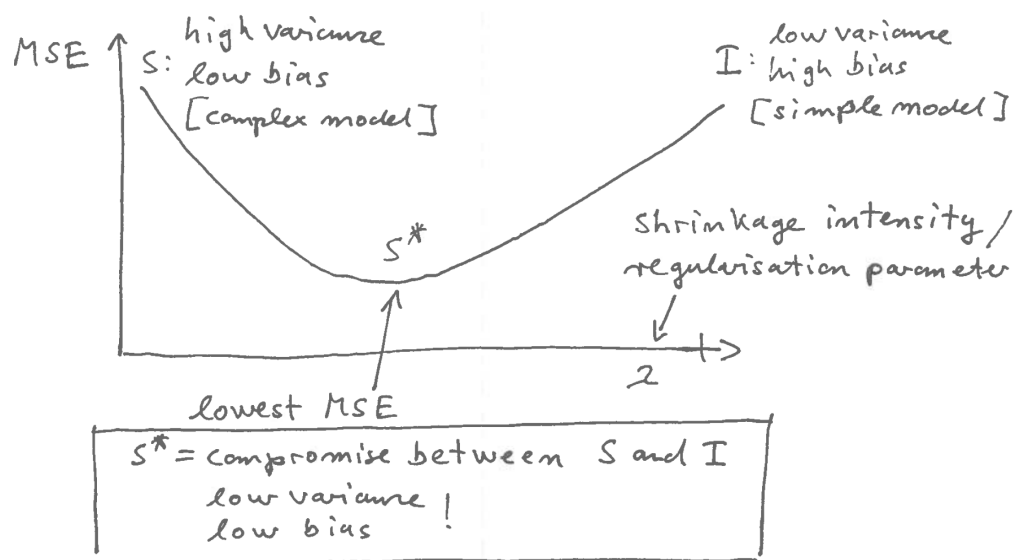 MSE
S: high variance
low bias
[complex model]
I: low variance
high bias
[simple model]
S*
shrinkage intensity/
regularisation parameter
λ
lowest MSE
S* = compromise between S and I
low variance !
low bias